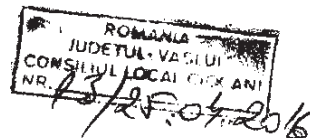 ROMANIA
JUDETUL VASLUI
CONSILIUL LOCAL
NR. 13/25.04.2016